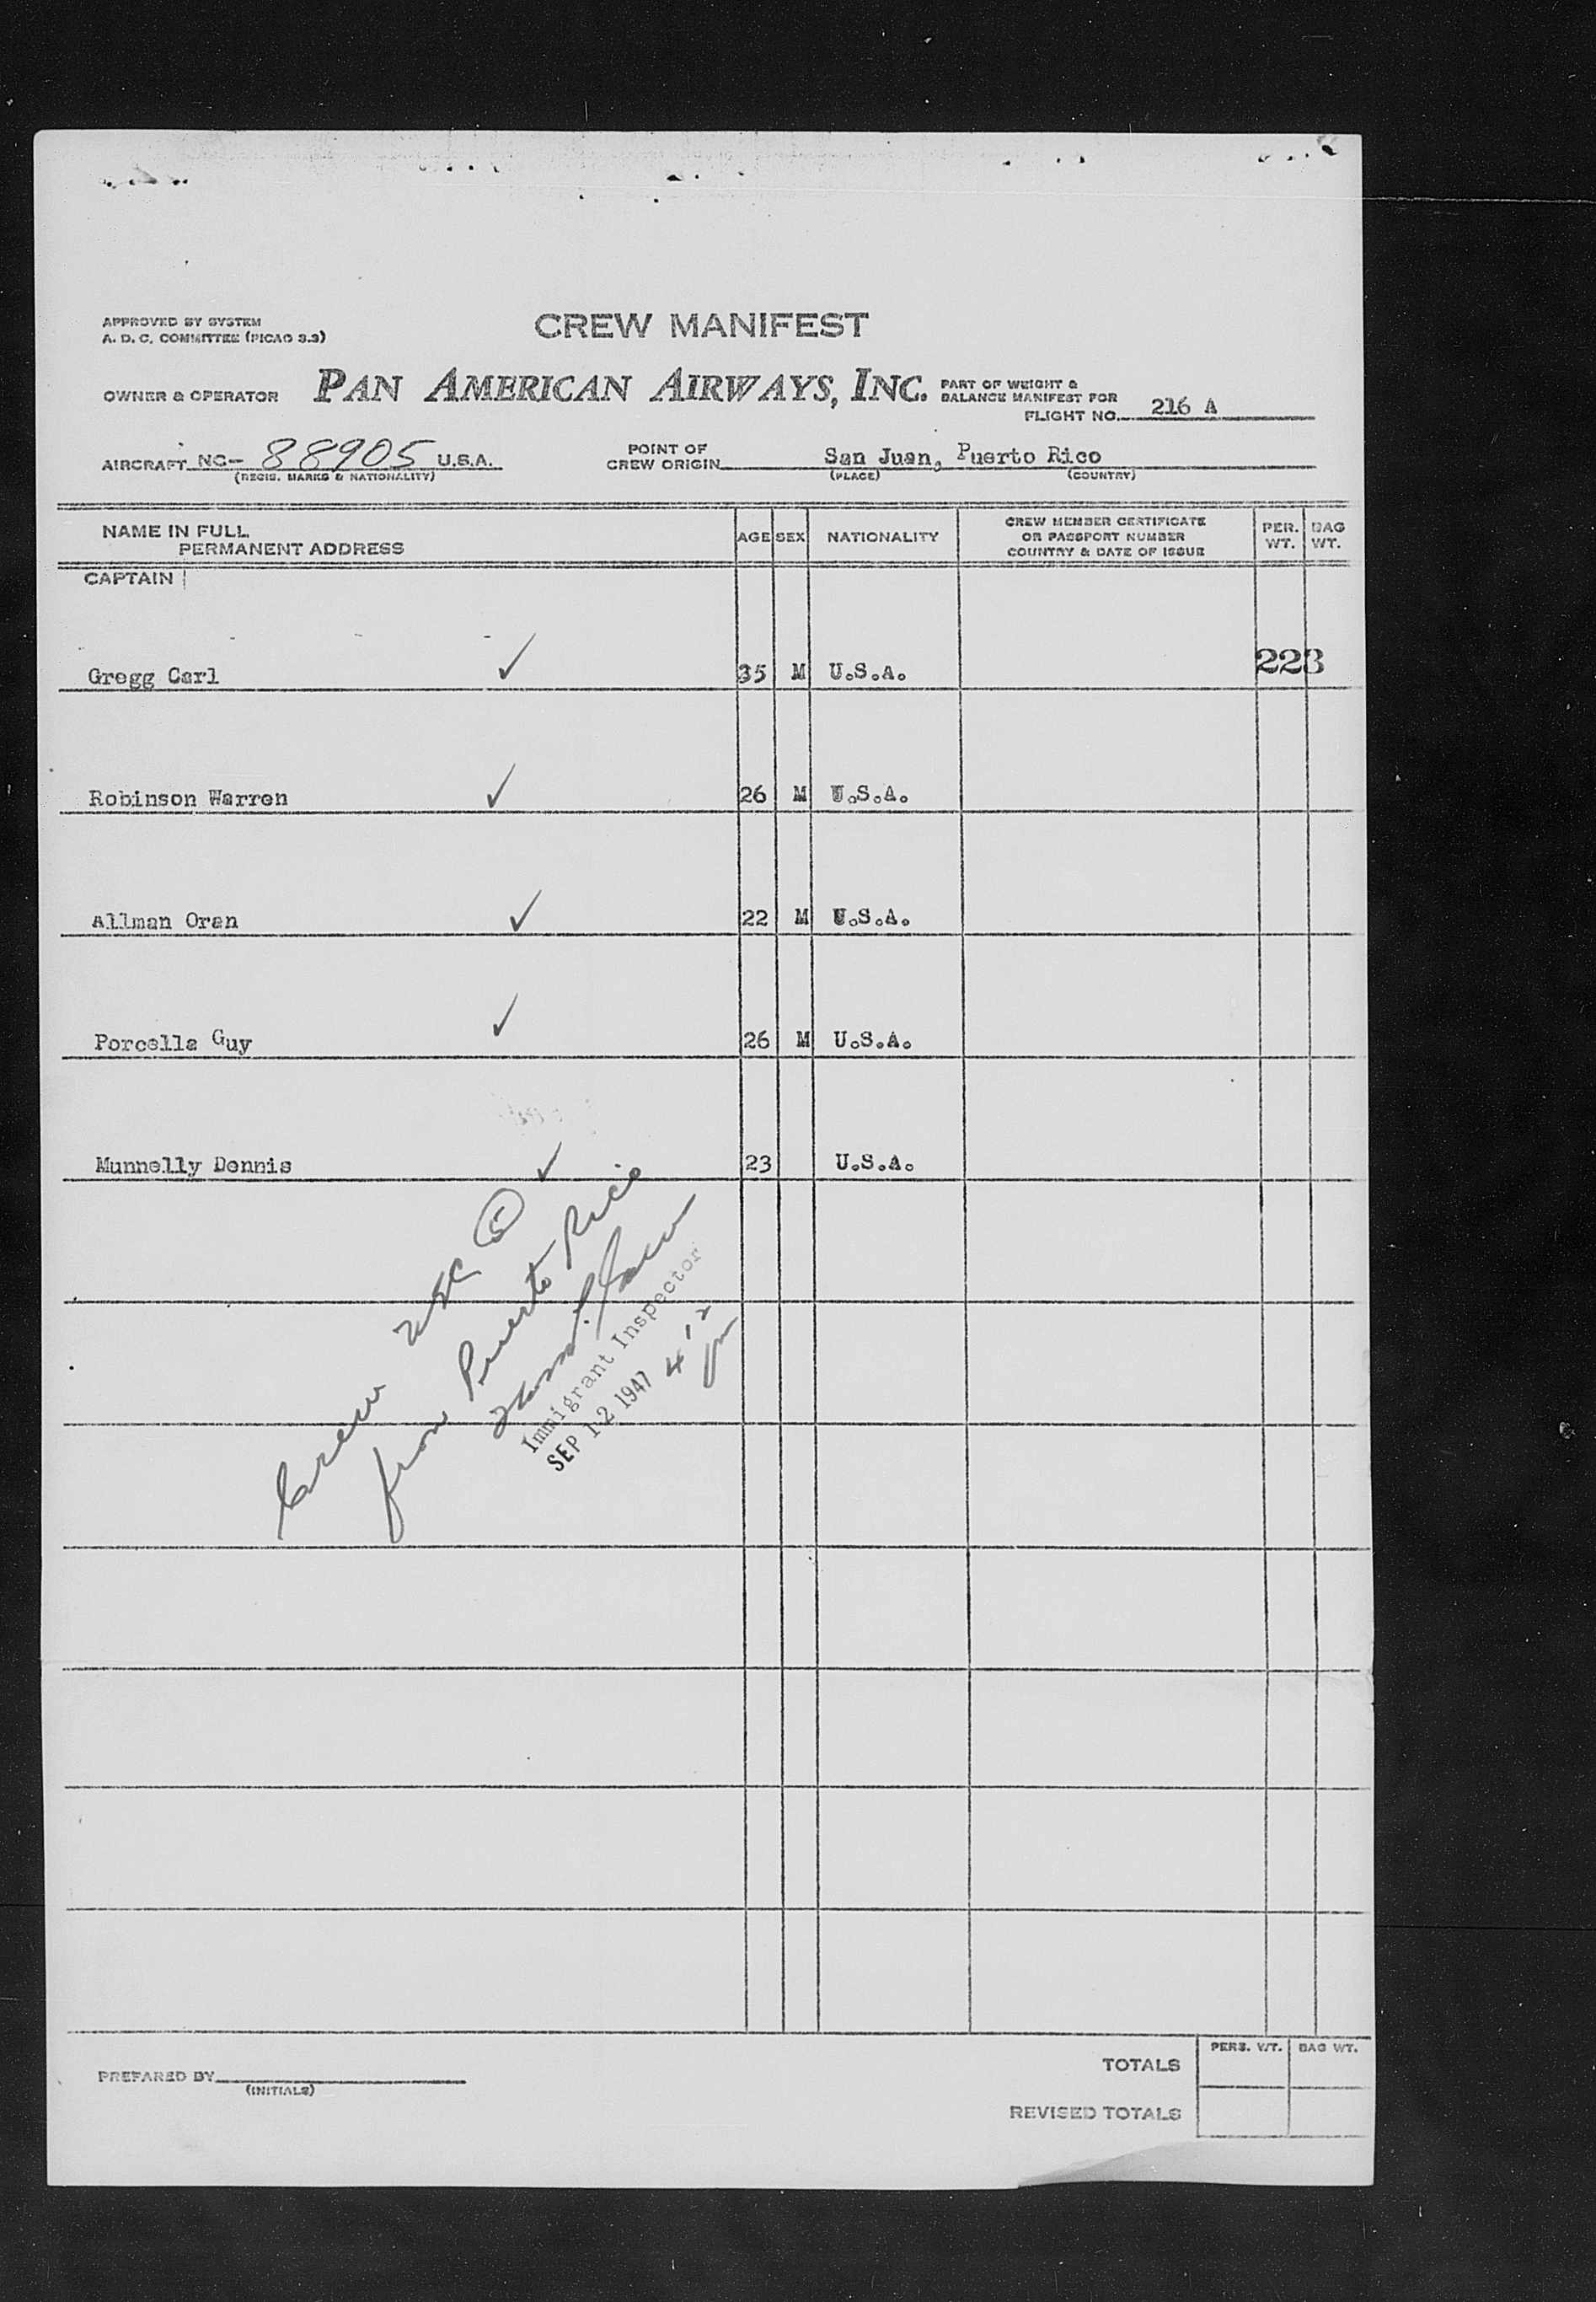 APPROVED BY SYSTEM
A. D. C. COMMITTEE (PICAO 3.3)
CREW MANIFEST
OWNER & OPERATOR PAN AMERICAN AIRWAYS, INC. PART OF WEIGHT &
BALANCE MANIFEST FOR
FLIGHT NO. 216 A
AIRCRAFT NC- 88905 U.S.A.
(REGIS. MARKS & NATIONALITY)
POINT OF
CREW ORIGIN San Juan, Puerto Rico
(PLACE) (COUNTRY)
NAME IN FULL
PERMANENT ADDRESS
AGE SEX NATIONALITY
CREW MEMBER CERTIFICATE
OR PASSPORT NUMBER
COUNTRY & DATE OF ISSUE
PER. WT.
BAG WT.
CAPTAIN
Gregg Carl 35 M U.S.A. 223
Robinson Warren 26 M U.S.A.
Allman Oran 22 M U.S.A.
Porcella Guy 26 M U.S.A.
Munnelly Dennis 23 U.S.A.
Crew USC 5
from Puerto Rico
Immigrant Inspector
SEP 12 1947 4:12
pm
PREPARED BY
(INITIALS)
PERS. WT. BAG WT.
TOTALS
REVISED TOTALS